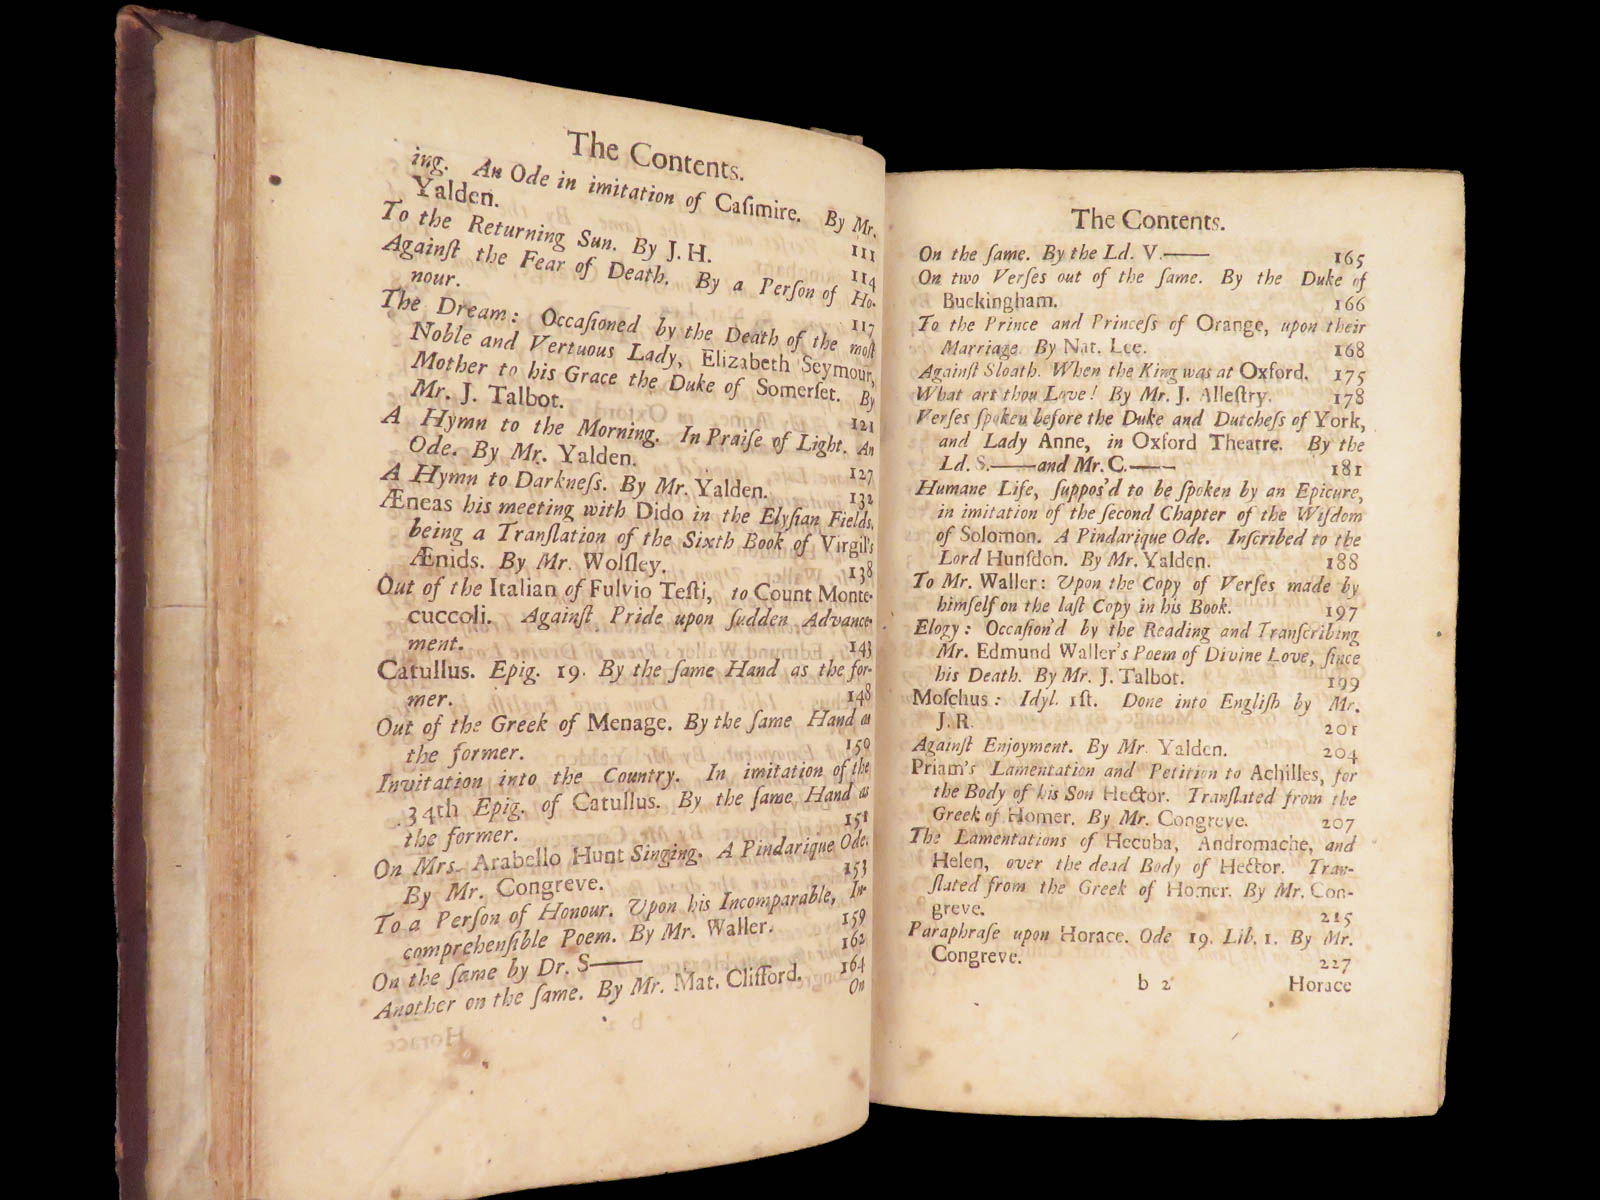 The Contents.
ing. An Ode in imitation of Caſimire. By Mr.
Yalden. 111
To the Returning Sun. By J. H. 114
Againſt the Fear of Death. By a Perſon of Ho-
nour. 117
The Dream: Occaſioned by the Death of the moſt
Noble and Vertuous Lady, Elizabeth Seymour,
Mother to his Grace the Duke of Somerſet. By
Mr. J. Talbot. 121
A Hymn to the Morning. In Praiſe of Light. An
Ode. By Mr. Yalden. 127
A Hymn to Darkneſs. By Mr. Yalden. 132
Æneas his meeting with Dido in the Elyſian Fields,
being a Tranſlation of the Sixth Book of Virgil's
Ænids. By Mr. Wolſley. 138
Out of the Italian of Fulvio Teſti, to Count Monte-
cuccoli. Againſt Pride upon ſudden Advance-
ment. 143
Catullus. Epig. 19. By the ſame Hand as the for-
mer. 148
Out of the Greek of Menage. By the ſame Hand as
the former. 150
Invitation into the Country. In imitation of the
34th Epig. of Catullus. By the ſame Hand as
the former. 151
On Mrs. Arabello Hunt Singing. A Pindarique Ode.
By Mr. Congreve. 153
To a Perſon of Honour. Upon his Incomparable, In-
comprehenſible Poem. By Mr. Waller. 159
On the ſame by Dr. S—— 162
Another on the ſame. By Mr. Mat. Clifford. 164
On
The Contents.
On the ſame. By the Ld. V.—— 165
On two Verſes out of the ſame. By the Duke of
Buckingham. 166
To the Prince and Princeſs of Orange, upon their
Marriage. By Nat. Lee. 168
Againſt Sloath. When the King was at Oxford. 175
What art thou Love! By Mr. J. Alleſtry. 178
Verſes ſpoken before the Duke and Dutcheſs of York,
and Lady Anne, in Oxford Theatre. By the
Ld. S.——and Mr. C.—— 181
Humane Life, ſuppos'd to be ſpoken by an Epicure,
in imitation of the ſecond Chapter of the Wiſdom
of Solomon. A Pindarique Ode. Inſcribed to the
Lord Hunſdon. By Mr. Yalden. 188
To Mr. Waller: Upon the Copy of Verſes made by
himſelf on the laſt Copy in his Book. 197
Elogy: Occaſion'd by the Reading and Tranſcribing
Mr. Edmund Waller's Poem of Divine Love, ſince
his Death. By Mr. J. Talbot. 199
Moſchus: Idyl. 1ſt. Done into Engliſh by Mr.
J. R. 201
Againſt Enjoyment. By Mr. Yalden. 204
Priam's Lamentation and Petition to Achilles, for
the Body of his Son Hector. Tranſlated from the
Greek of Homer. By Mr. Congreve. 207
The Lamentations of Hecuba, Andromache, and
Helen, over the dead Body of Hector. Tran-
ſlated from the Greek of Homer. By Mr. Con-
greve. 215
Paraphraſe upon Horace. Ode 19. Lib. 1. By Mr.
Congreve. 227
b 2 Horace